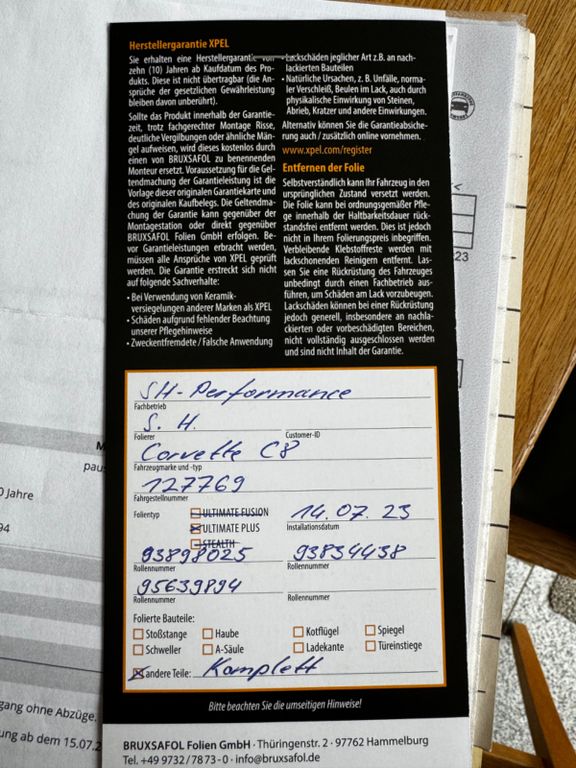 Herstellergarantie XPEL
Sie erhalten eine Herstellergarantie von
zehn (10) Jahren ab Kaufdatum des Pro-
dukts. Diese ist nicht übertragbar (die An-
sprüche der gesetzlichen Gewährleistung
bleiben davon unberührt).
Sollte das Produkt innerhalb der Garantie-
zeit, trotz fachgerechter Montage Risse,
deutliche Vergilbungen oder ähnliche Män-
gel aufweisen, wird dieses kostenlos durch
einen von BRUXSAFOL zu benennenden
Monteur ersetzt. Voraussetzung für die Gel-
tendmachung der Garantieleistung ist die
Vorlage dieser originalen Garantiekarte und
des originalen Kaufbelegs. Die Geltendma-
chung der Garantie kann gegenüber der
Montagestation oder direkt gegenüber
BRUXSAFOL Folien GmbH erfolgen. Be-
vor Garantieleistungen erbracht werden,
müssen alle Ansprüche von XPEL geprüft
werden. Die Garantie erstreckt sich nicht
auf folgende Sachverhalte:
• Bei Verwendung von Keramik-
versiegelungen anderer Marken als XPEL
• Schäden aufgrund fehlender Beachtung
unserer Pflegehinweise
• Zweckentfremdete / Falsche Anwendung
• Lackschäden jeglicher Art z.B. an nach-
lackierten Bauteilen
• Natürliche Ursachen, z. B. Unfälle, norma-
ler Verschleiß, Beulen im Lack, auch durch
physikalische Einwirkung von Steinen,
Abrieb, Kratzer und andere Einwirkungen.
Alternativ können Sie die Garantieabsiche-
rung auch / zusätzlich online vornehmen.
www.xpel.com/register
Entfernen der Folie
Selbstverständlich kann Ihr Fahrzeug in den
ursprünglichen Zustand versetzt werden.
Die Folie kann bei ordnungsgemäßer Pfle-
ge innerhalb der Haltbarkeitsdauer rück-
standsfrei entfernt werden. Dies ist jedoch
nicht in Ihrem Folierungspreis inbegriffen.
Verbleibende Klebstoffreste werden mit
lackschonenden Reinigern entfernt. Las-
sen Sie eine Rückrüstung des Fahrzeuges
unbedingt durch einen Fachbetrieb aus-
führen, um Schäden am Lack vorzubeugen.
Lackschäden können bei einer Rückrüstung
jedoch generell, insbesondere an nachla-
ckierten oder vorbeschädigten Bereichen,
nicht vollständig ausgeschlossen werden
und sind nicht Inhalt der Garantie.
SH-Performance
Fachbetrieb
S. H.
Folierer Customer-ID
Corvette C8
Fahrzeugmarke und -typ
127769
Fahrgestellnummer
Folientyp ULTIMATE FUSION 14.07.23
ULTIMATE PLUS Installationsdatum
STEALTH
93898025 93834438
Rollennummer Rollennummer
95639894
Rollennummer Rollennummer
Folierte Bauteile:
Stoßstange Haube Kotflügel Spiegel
Schweller A-Säule Ladekante Türeinstiege
andere Teile: Komplett
Bitte beachten Sie die umseitigen Hinweise!
BRUXSAFOL Folien GmbH · Thüringenstr. 2 · 97762 Hammelburg
Tel. +49 9732 / 78 73 - 0 · info@bruxsafol.de
pau
0 Jahre
94
gang ohne Abzüge.
ung ab dem 15.07.2
23